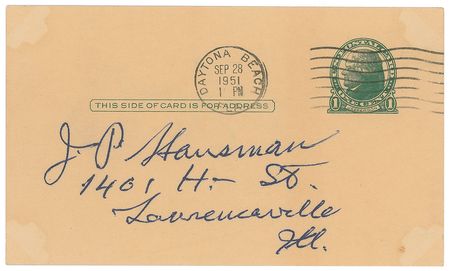 DAYTONA BEACH
SEP 28
1951
1 PM
FLA.
U.S. POSTAGE
1 1
THIS SIDE OF CARD IS FOR ADDRESS
J. P. Hausman
1401 H- St.
Lawrenceville
Ill.